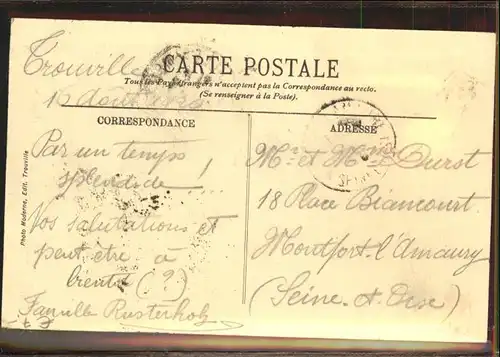 CARTE POSTALE
Tous les Pays étrangers n'acceptent pas la Correspondance au recto.
(Se renseigner à la Poste).
Trouville
16 Août
CORRESPONDANCE
Par un temps
splendide !
Vos salutations et
peut être à
bientôt (?)
Famille Rusterholz
ADRESSE
Mr et Mme Durst
18 Place Biancourt
Montfort-l'Amaury
(Seine-et-Oise)
Photo Moderne, Edit. Trouville